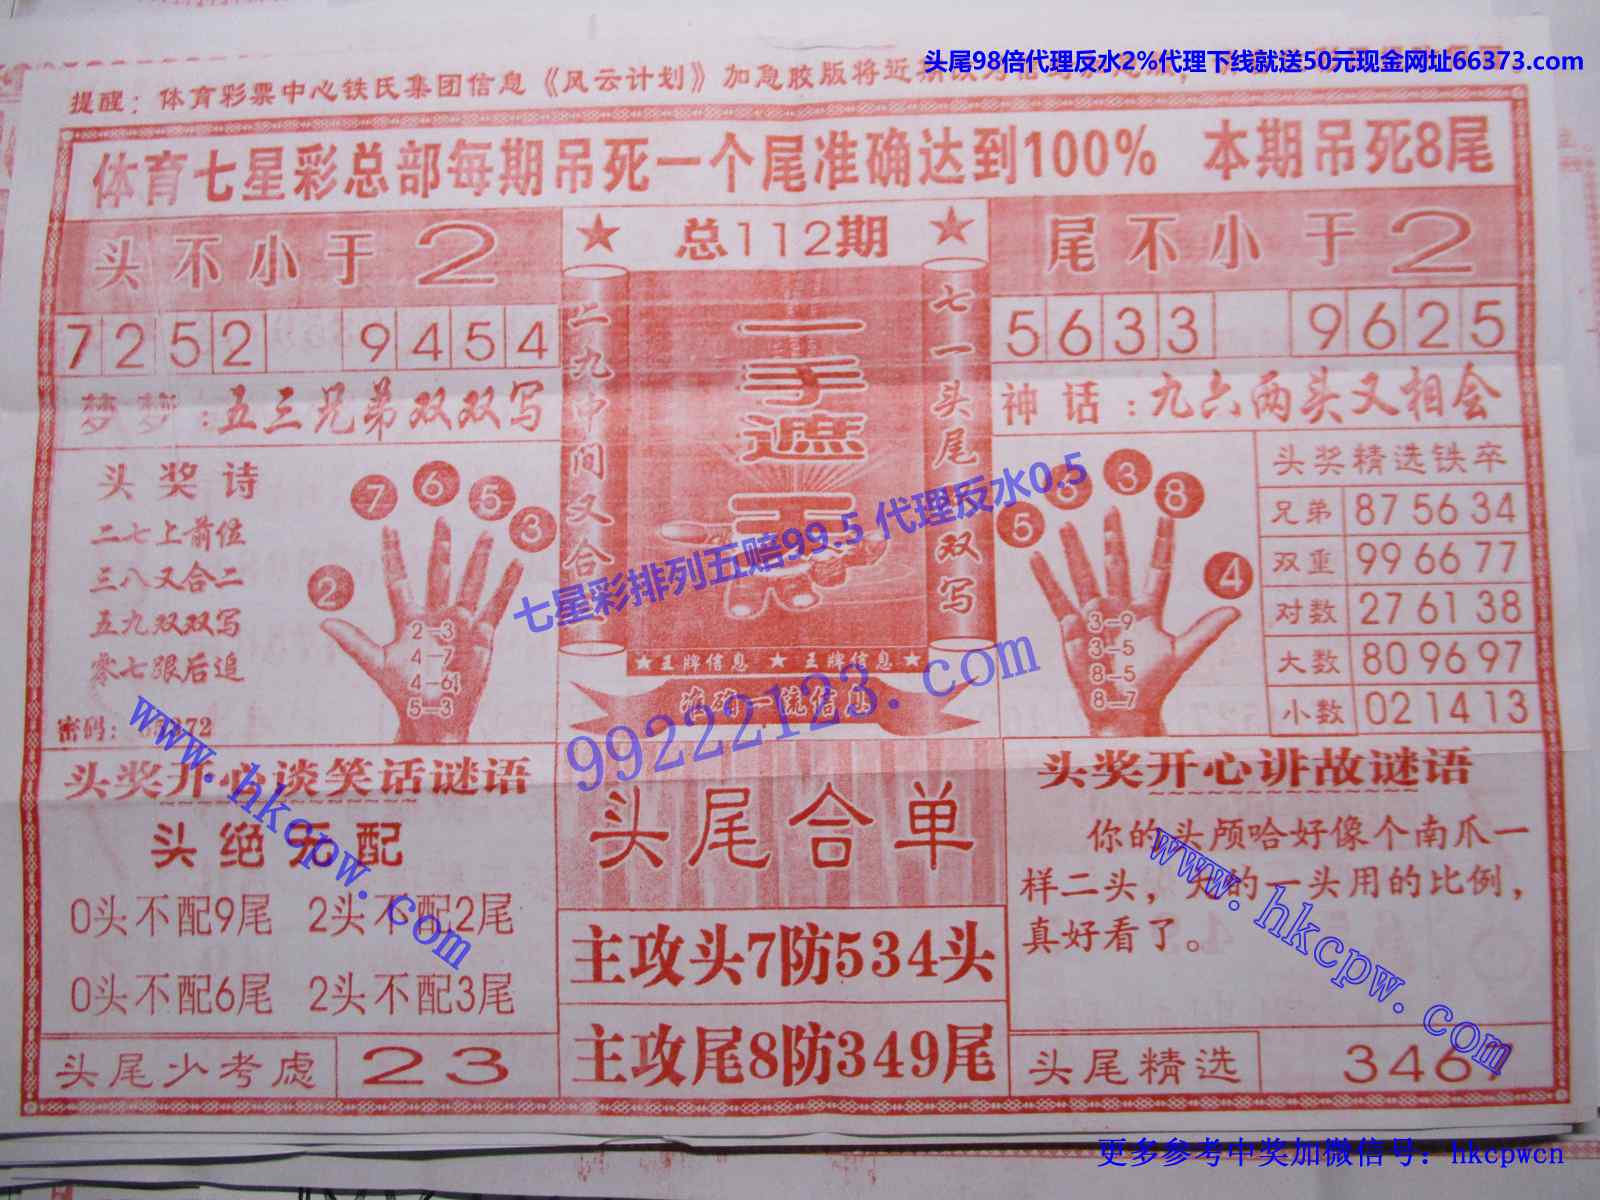 头尾98倍代理反水2%代理下线就送50元现金网址66373.com
提醒：体育彩票中心铁氏集团信息《风云计划》加急胶版将近期
体育七星彩总部每期吊死一个尾准确达到100% 本期吊死8尾
头不小于2
7 2 5 2 9 4 5 4
梦梦：五三兄弟双双写
头奖诗
二七上前位
三八又合二
五九双双写
零七跟后追
密码：
2 7 6 5 3
2-3
4-7
4-6
5-3
总112期
二九中间又合
一手遮天
七一头尾双写
★王牌信息 ★ 王牌信息★
准确一流信息
尾不小于2
5 6 3 3 9 6 2 5
神话：九六两头又相会
5 6 3 8 4
3-9
3-5
8-5
8-7
头奖精选铁卒
兄弟 87 56 34
双重 99 66 77
对数 27 61 38
大数 80 96 97
小数 02 14 13
七星彩排列五赔99.5 代理反水0.5
99222123.com
头奖开心谈笑话谜语
头绝无配
0头不配9尾 2头不配2尾
0头不配6尾 2头不配3尾
头尾少考虑 23
头尾合单
主攻头7防534头
主攻尾8防349尾
头奖开心讲故谜语
你的头颅哈好像个南爪一
样二头，大的一头用的比例，
真好看了。
头尾精选 346
www.hkcpw.com
www.hkcpw.com
更多参考中奖加微信号：hkcpwcn